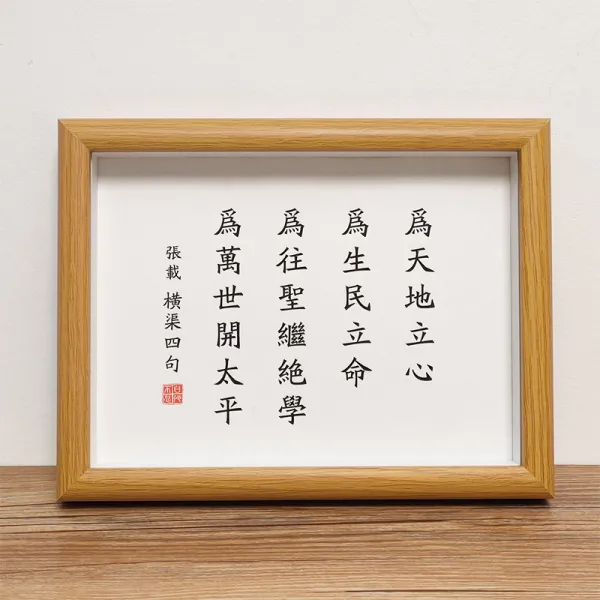 爲天地立心
爲生民立命
爲往聖繼絶學
爲萬世開太平
張載 横渠四句